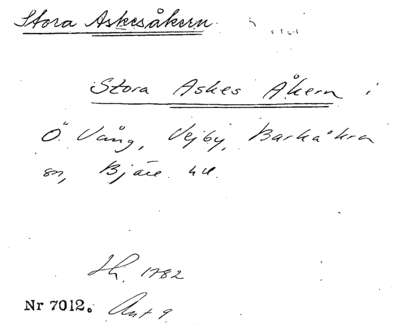 Stora Askesåkern
Stora Askes Åkern i
Ö. Vång, Vejby, Barkåkra
sn, Bjäre hd.
Sk. 1782
Nr 7012. Akt 9